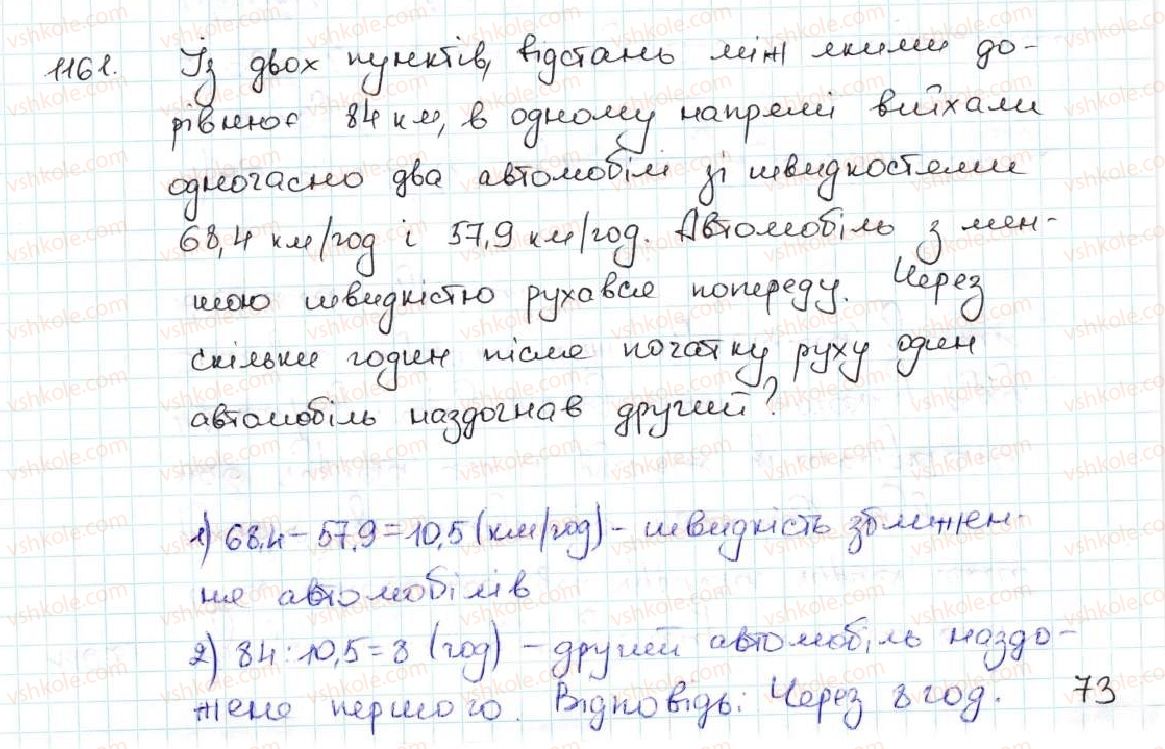 1161. Із двох пунктів, відстань між якими до-
рівнює 84 км, в одному напрямі виїхали
одночасно два автомобілі зі швидкостями
68,4 км/год і 57,9 км/год. Автомобіль з мен-
шою швидкістю рухався попереду. Через
скільки годин після початку руху один
автомобіль наздогнав другий?
1) 68,4 - 57,9 = 10,5 (км/год) - швидкість зближен-
ня автомобілів
2) 84 : 10,5 = 8 (год) - другий автомобіль наздо-
жене першого. Відповідь: Через 8 год.
73
vshkole.com